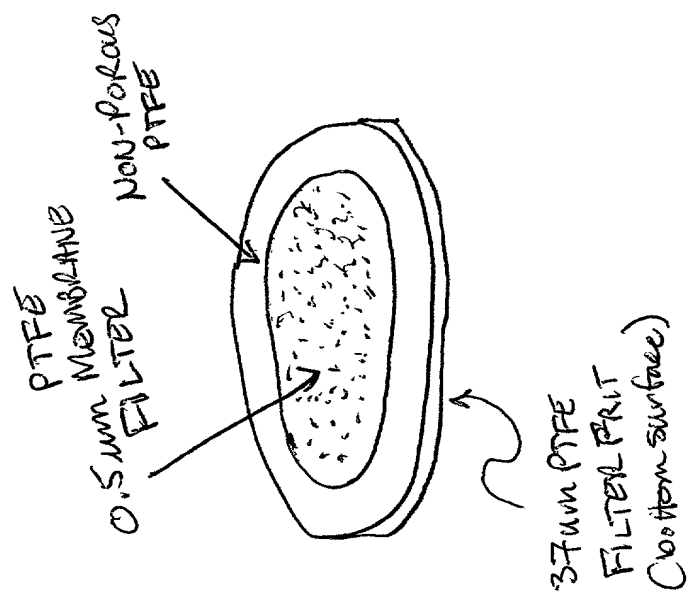 PTFE
0.5 um MEMBRANE
FILTER
NON-POROUS
PTFE
37um PTFE
FILTER FRIT
(bottom surface)